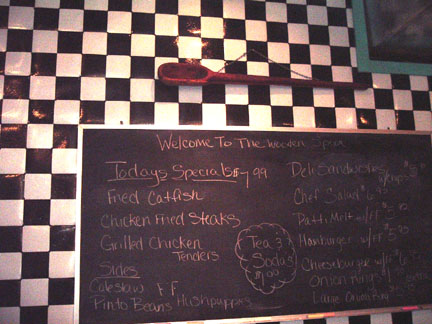 Welcome To The Wooden Spoon
Todays Specials $7.99
Fried Catfish
Chicken Fried Steaks
Grilled Chicken
Tenders
Sides
Coleslaw FF
Pinto Beans Hushpuppies
Tea &
Sodas
$1.00
Deli Sandwiches
Chef Salad
Patti Melt w/FF
Hamburger w/FF
Cheeseburger w/FF
Onion rings
Large Onion Ring